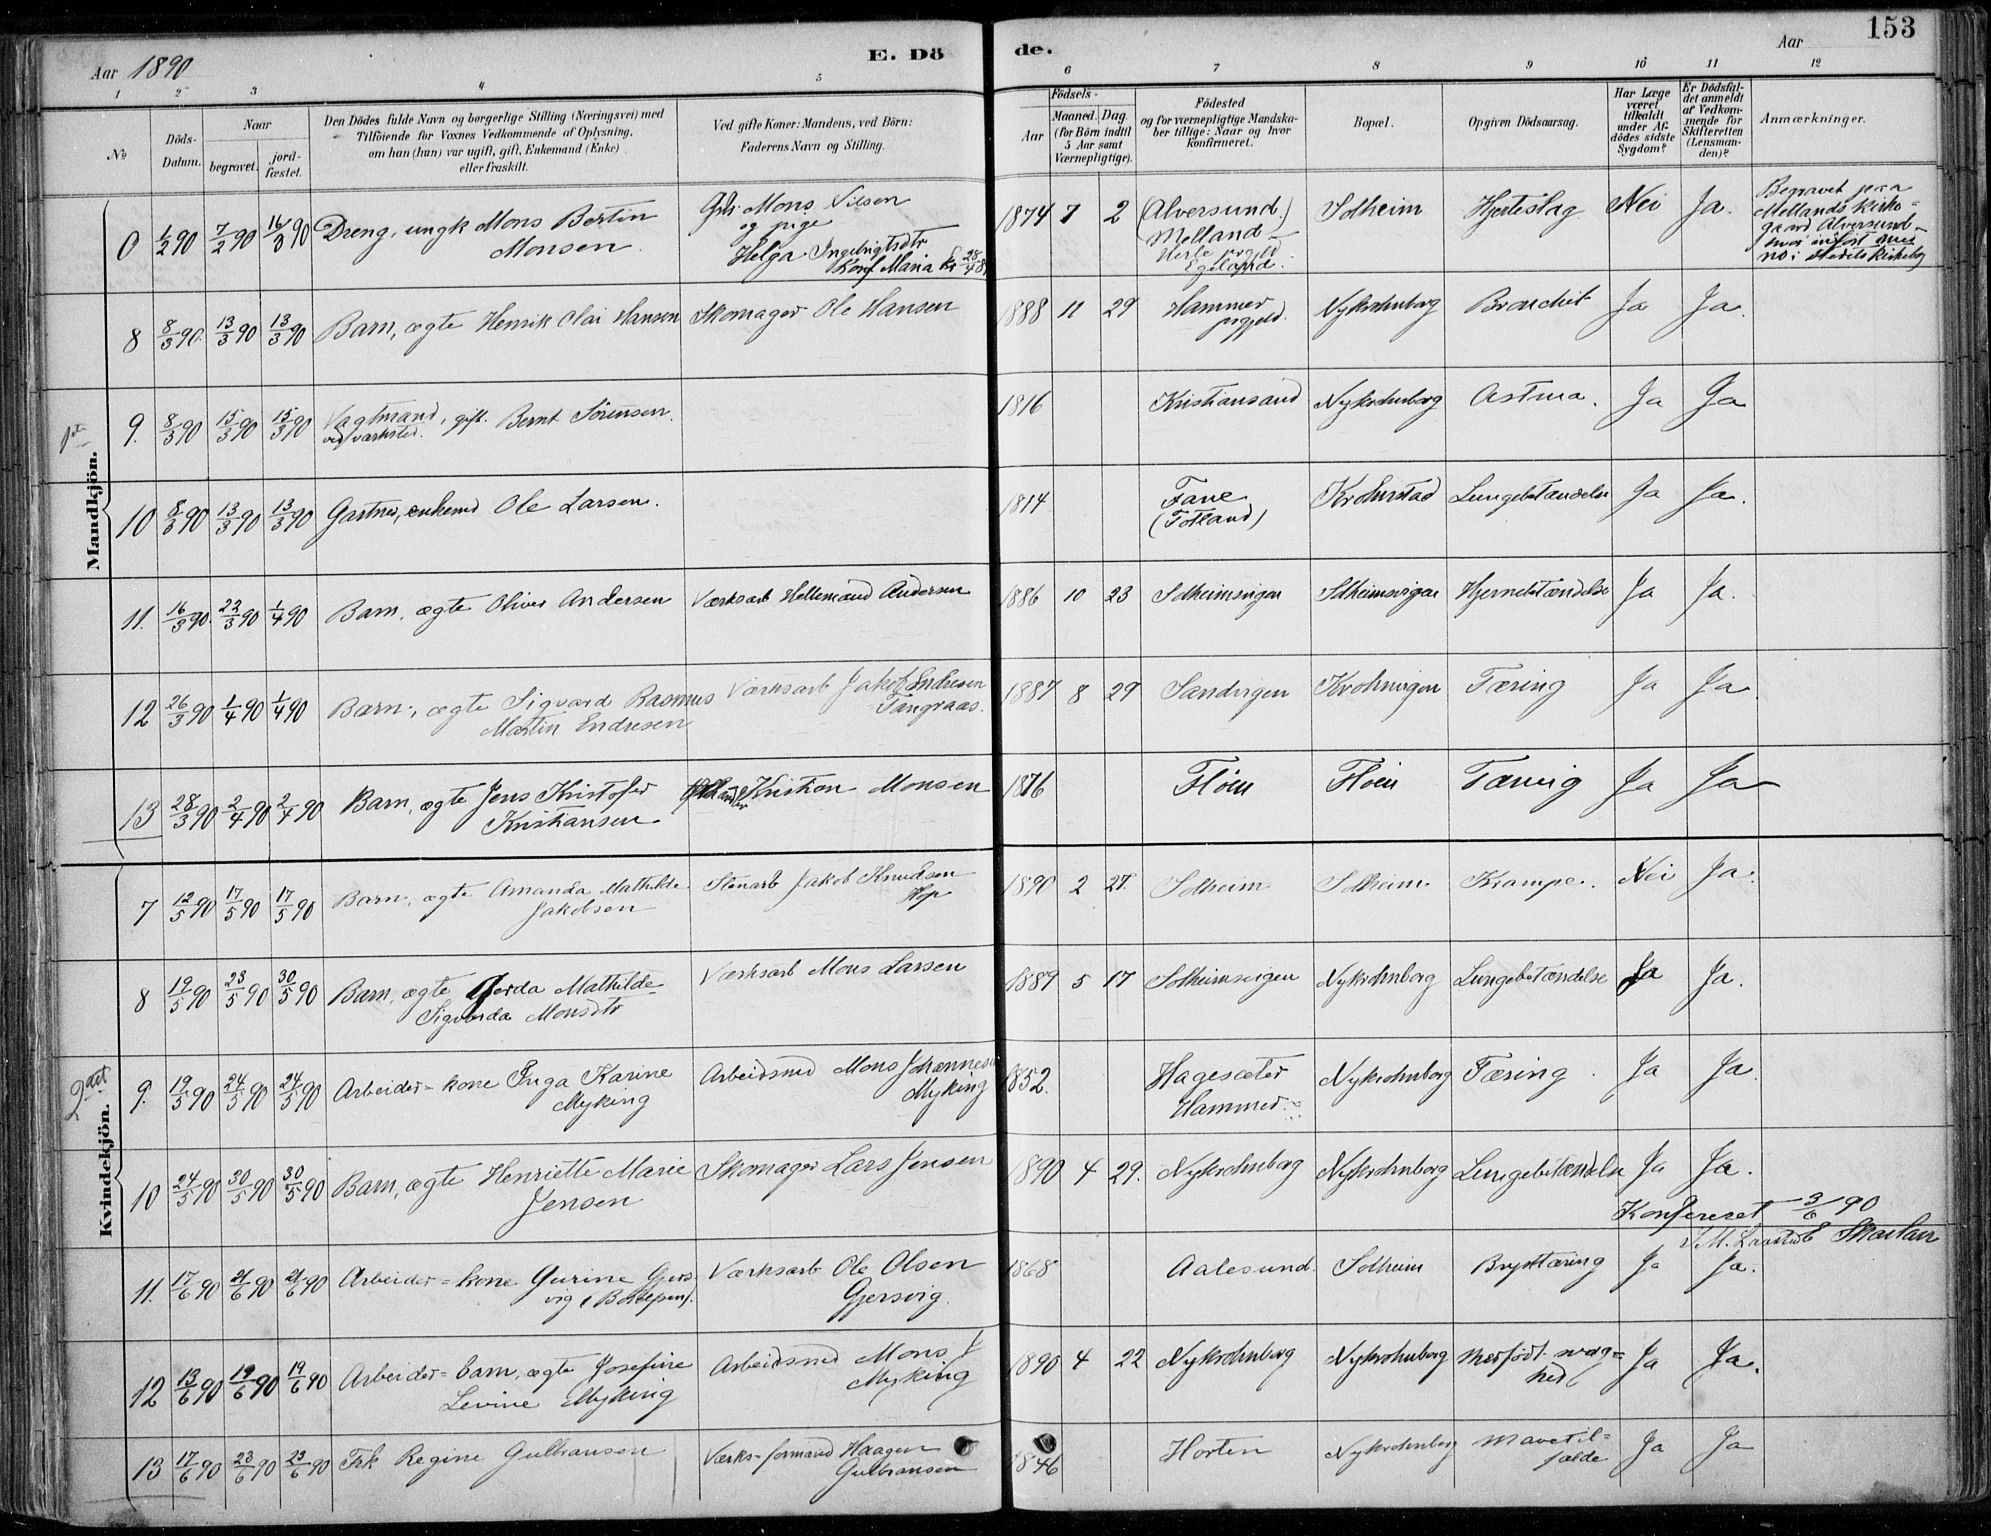 Aar 1890 E. Dö de. Aar 153
1 2 3 4 5 6 7 8 9 10 11 12
No
Döds-Datum.
Naar
begravet.
jordfæstet.
Den Dödes fulde Navn og borgerlige Stilling (Næringsvei) med
Tilföiende for Voxnes Vedkommende af Oplysning,
om han (hun) var ugift, gift, Enkemand (Enke)
eller fraskilt.
Ved gifte Koner: Mandens, ved Börn:
Faderens Navn og Stilling.
Födsels-
Aar
Maaned. Dag.
(for Börn indtil
5 Aar samt
Værnepligtige).
Födested
og for værnepligtige Mandska-
ber tillige: Naar og hvor
konfirmeret.
Bopæl.
Opgiven Dödsaarsag.
Har Læge
været
tilkaldt
under Af-
dödes sidste
Sygdom?
Er Dödsfal-
det anmeldt
af Vedkom-
mende for
Skifteretten
(Lensman-
den)?
Anmærkninger.
Mandkjön.
0 1/2 90 7/2 90 16/3 90 Dreng, ungk Mons Bertin
Monsen.
Mons Nilsen
og pige
Helga Ingebrigtsdtr
Konf Maria K 28/4
1874 7 2 (Alversund.)
Melland
Herlø prgjeld
Egeland.
Solheim Hjerteslag Nei Ja.
Begravet paa
Mellands Kirke-
gaard Alversund
hvor indført
no i stedets kirkebog
8 8/3 90. 13/3 90 13/3 90 Barn, ægte Henrik Olai Hansen Skomager Ole Hansen 1888 11 29 Hammer
prgjeld.
Nykrohnborg Bronchit Ja Ja.
9. 8/3 90 15/3 90 15/3 90 Vagtmand, gift. Bernt Sörensen.
ved værksted.
1816 Kristiansand Nykrohnborg Astma. Ja Ja
10 8/3 90 13/3 90 13/3 90 Gartner, enkemd Ole Larsen. 1814 Fane
(Totland)
Krohnstad Lungebetændelse Ja Ja.
11. 16/3 90. 22/3 90 1/4 90 Barn, ægte Oliver Andersen Værksarb Hellemand Andersen 1886 10 23 Solheimsvigen Solheimsvigen Hjernebetændelse Ja Ja.
12 26/3 90 1/4 90 1/4 90 Barn, ægte Sigvard Rasmus
Martin Endresen
Værksarb Jakob Endresen
Tangraas.
1887 8 29 Sandvigen Krohnvigen Tæring Ja Ja.
13 28/3 90 2/4 90 2/4 90 Barn, ægte Jens Kristofer
Kristiansen.
Kristian Monsen 1876 Fløien Fløien Tæring Ja Ja
Kvindekjön.
7 12/5 90 17/5 90 17/5 90 Barn, ægte Amanda Mathilde
Jakobsen
Stenarb Jakob Knudsen
Hop
1890 2 27. Solheim Solheim Krampe. Nei Ja.
8 19/5 90 23/5 90 30/5 90 Barn, ægte Gerda Mathilde
Sigvarda Monsdtr
Værksarb Mons Larsen 1889 5 17 Solheimsvigen Nykrohnborg Lungebetændelse Ja Ja.
9. 19/5 90 24/5 90 24/5 90 Arbeider-kone Inga Karine
Myking
Arbeidsmd Mons Johannes
Myking
1852. Hagesæter
Hammer.
Nykrohnborg Tæring. Ja Ja.
10 24/5 90 30/5 90 30/5 90 Barn, ægte Henriette Marie
Jensen
Skomager Lars Jensen 1890 4 29. Nykrohnborg Nykrohnborg Lungebetændelse Ja Ja.
Konfereret 3/6 90
11. 17/6 90 21/6 90 21/6 90 Arbeider-kone Gurine Gjers-
vig
Værksarb Ole Olsen
Gjersvig.
1868 Aalesund. Solheim Brysttæring Ja Ja.
12 13/6 90 19/6 90 19/6 90 Arbeider-barn, ægte Josefine
Levine Myking
Arbeidsmd Mons J
Myking
1890 4 22 Nykrohnborg Nykrohnborg Medfödt svag-
hed
Ja Ja.
13 17/6 90 23/6 90 23/6 90 Frk Regine Gulbransen Værks-formand Haagen
Gulbransen
1846 Horten Nykrohnborg Mavetil-
fælde
Ja Ja